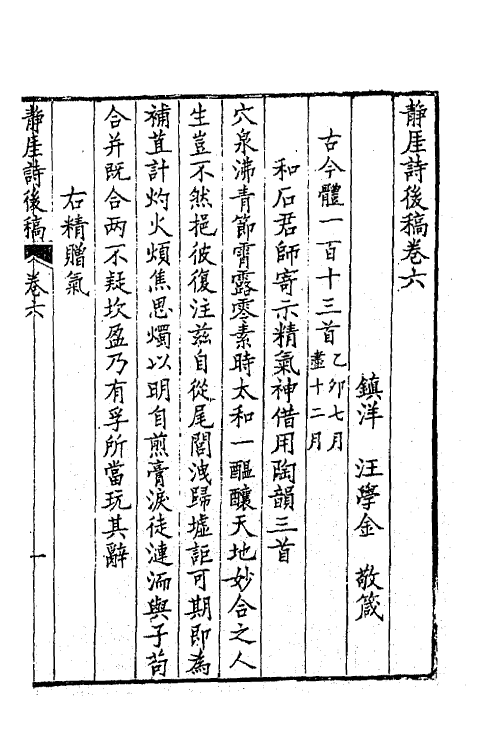 靜厓詩後稿卷六
鎮洋　汪學金　敬箴
古今體一百十三首乙卯七月盡十二月
和石君師寄示精氣神借用陶韻三首
穴泉沸青節霄露零素時太和一醞釀天地妙合之人
生豈不然挹彼復注茲自從尾閭洩歸墟詎可期即為
補苴計灼火煩焦思燭以明自煎膏淚徒漣洏與子苟
合并既合兩不疑坎盈乃有孚所當玩其辭
右精贈氣
靜厓詩後稿　卷六　一